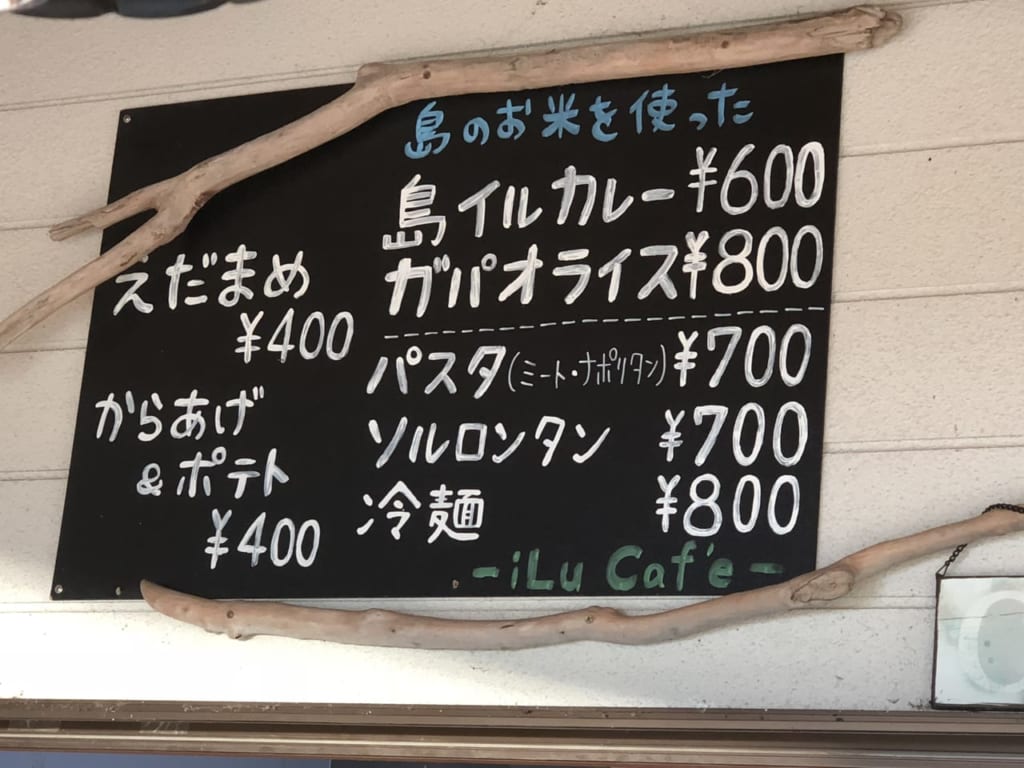 島のお米を使った
島イルカレー ¥600
ガパオライス ¥800
パスタ(ミート・ナポリタン) ¥700
ソルロンタン ¥700
冷麺 ¥800
えだまめ
¥400
からあげ
&ポテト
¥400
-iLu Café-